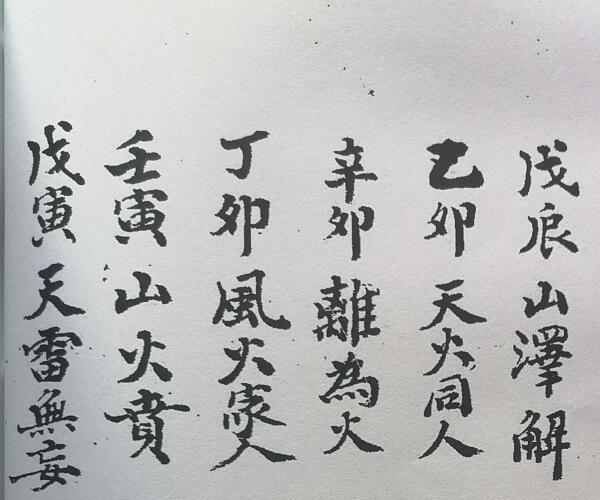 戊辰 山澤解
乙卯 天火同人
辛卯 離為火
丁卯 風火家人
壬寅 山火賁
戊寅 天雷無妄